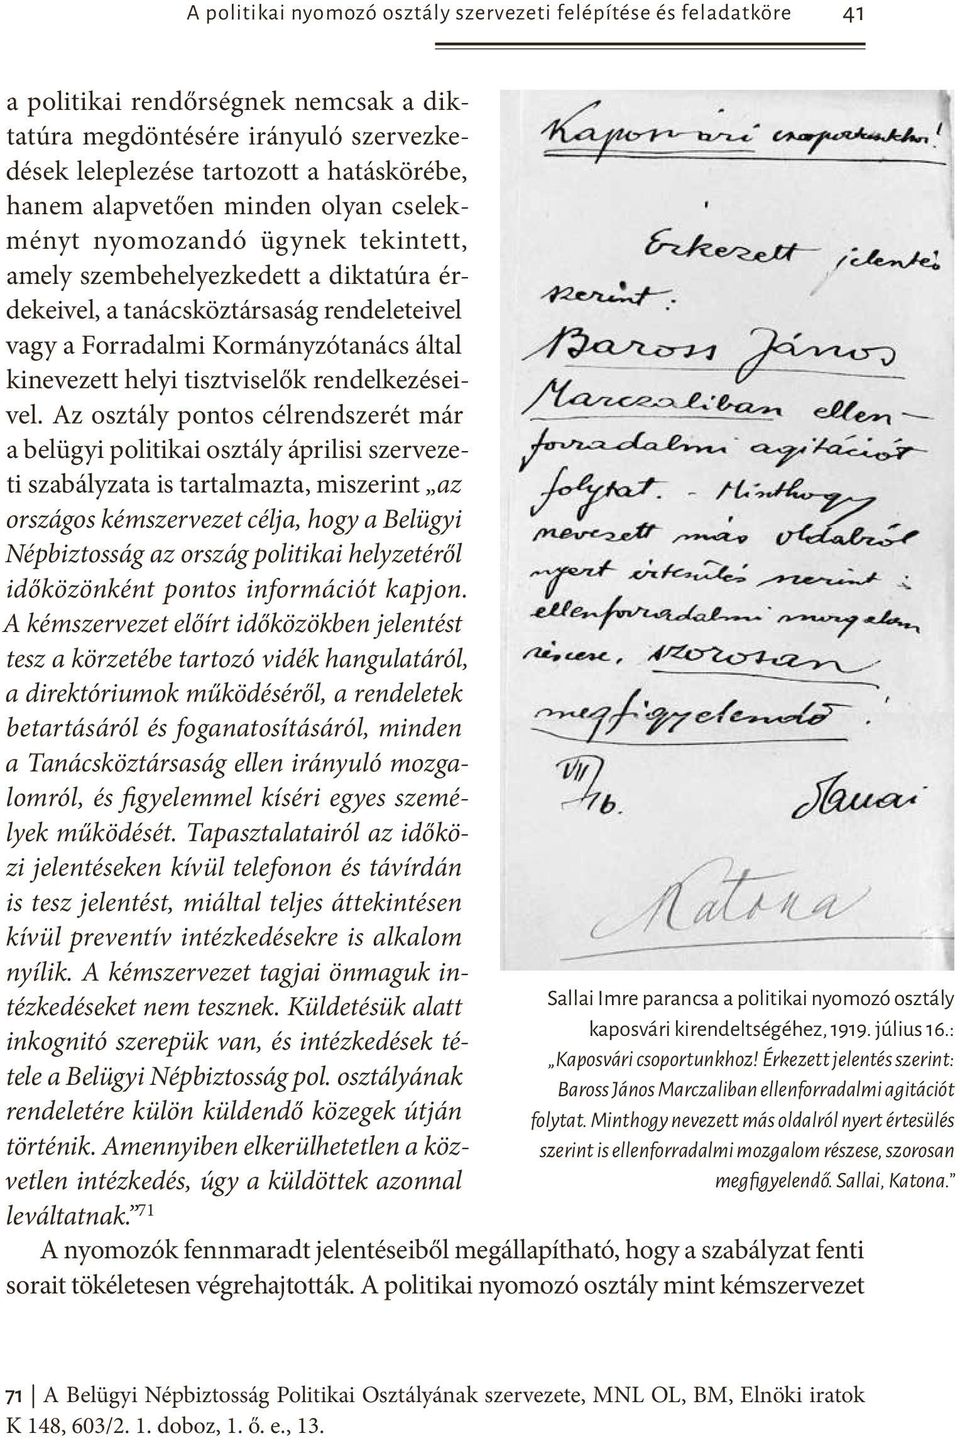 A politikai nyomozó osztály szervezeti felépítése és feladatköre 41
a politikai rendőrségnek nemcsak a dik-
tatúra megdöntésére irányuló szervezke-
dések leleplezése tartozott a hatáskörébe,
hanem alapvetően minden olyan cselek-
ményt nyomozandó ügynek tekintett,
amely szembehelyezkedett a diktatúra ér-
dekeivel, a tanácsköztársaság rendeleteivel
vagy a Forradalmi Kormányzótanács által
kinevezett helyi tisztviselők rendelkezései-
vel. Az osztály pontos célrendszerét már
a belügyi politikai osztály áprilisi szerveze-
ti szabályzata is tartalmazta, miszerint „az
országos kémszervezet célja, hogy a Belügyi
Népbiztosság az ország politikai helyzetéről
időközönként pontos információt kapjon.
A kémszervezet előírt időközökben jelentést
tesz a körzetébe tartozó vidék hangulatáról,
a direktóriumok működéséről, a rendeletek
betartásáról és foganatosításáról, minden
a Tanácsköztársaság ellen irányuló mozga-
lomról, és figyelemmel kíséri egyes szemé-
lyek működését. Tapasztalatairól az időkö-
zi jelentéseken kívül telefonon és távírdán
is tesz jelentést, miáltal teljes áttekintésen
kívül preventív intézkedésekre is alkalom
nyílik. A kémszervezet tagjai önmaguk in-
tézkedéseket nem tesznek. Küldetésük alatt
inkognitó szerepük van, és intézkedések té-
tele a Belügyi Népbiztosság pol. osztályának
rendeletére külön küldendő közegek útján
történik. Amennyiben elkerülhetetlen a köz-
vetlen intézkedés, úgy a küldöttek azonnal
leváltatnak.”71
Kaposvári csoportunkhoz!
Érkezett jelentés
szerint:
Baross János
Marczaliban ellen-
forradalmi agitációt
folytat. - Minthogy
nevezett más oldalról
nyert értesülés szerint is
ellenforradalmi mozgalom
részese, szorosan
megfigyelendő!
VII/16. Sallai
Katona
Sallai Imre parancsa a politikai nyomozó osztály
kaposvári kirendeltségéhez, 1919. július 16.:
„Kaposvári csoportunkhoz! Érkezett jelentés szerint:
Baross János Marczaliban ellenforradalmi agitációt
folytat. Minthogy nevezett más oldalról nyert értesülés
szerint is ellenforradalmi mozgalom részese, szorosan
megfigyelendő. Sallai, Katona.”
A nyomozók fennmaradt jelentéseiből megállapítható, hogy a szabályzat fenti
sorait tökéletesen végrehajtották. A politikai nyomozó osztály mint kémszervezet
71 | A Belügyi Népbiztosság Politikai Osztályának szervezete, MNL OL, BM, Elnöki iratok
K 148, 603/2. 1. doboz, 1. ő. e., 13.